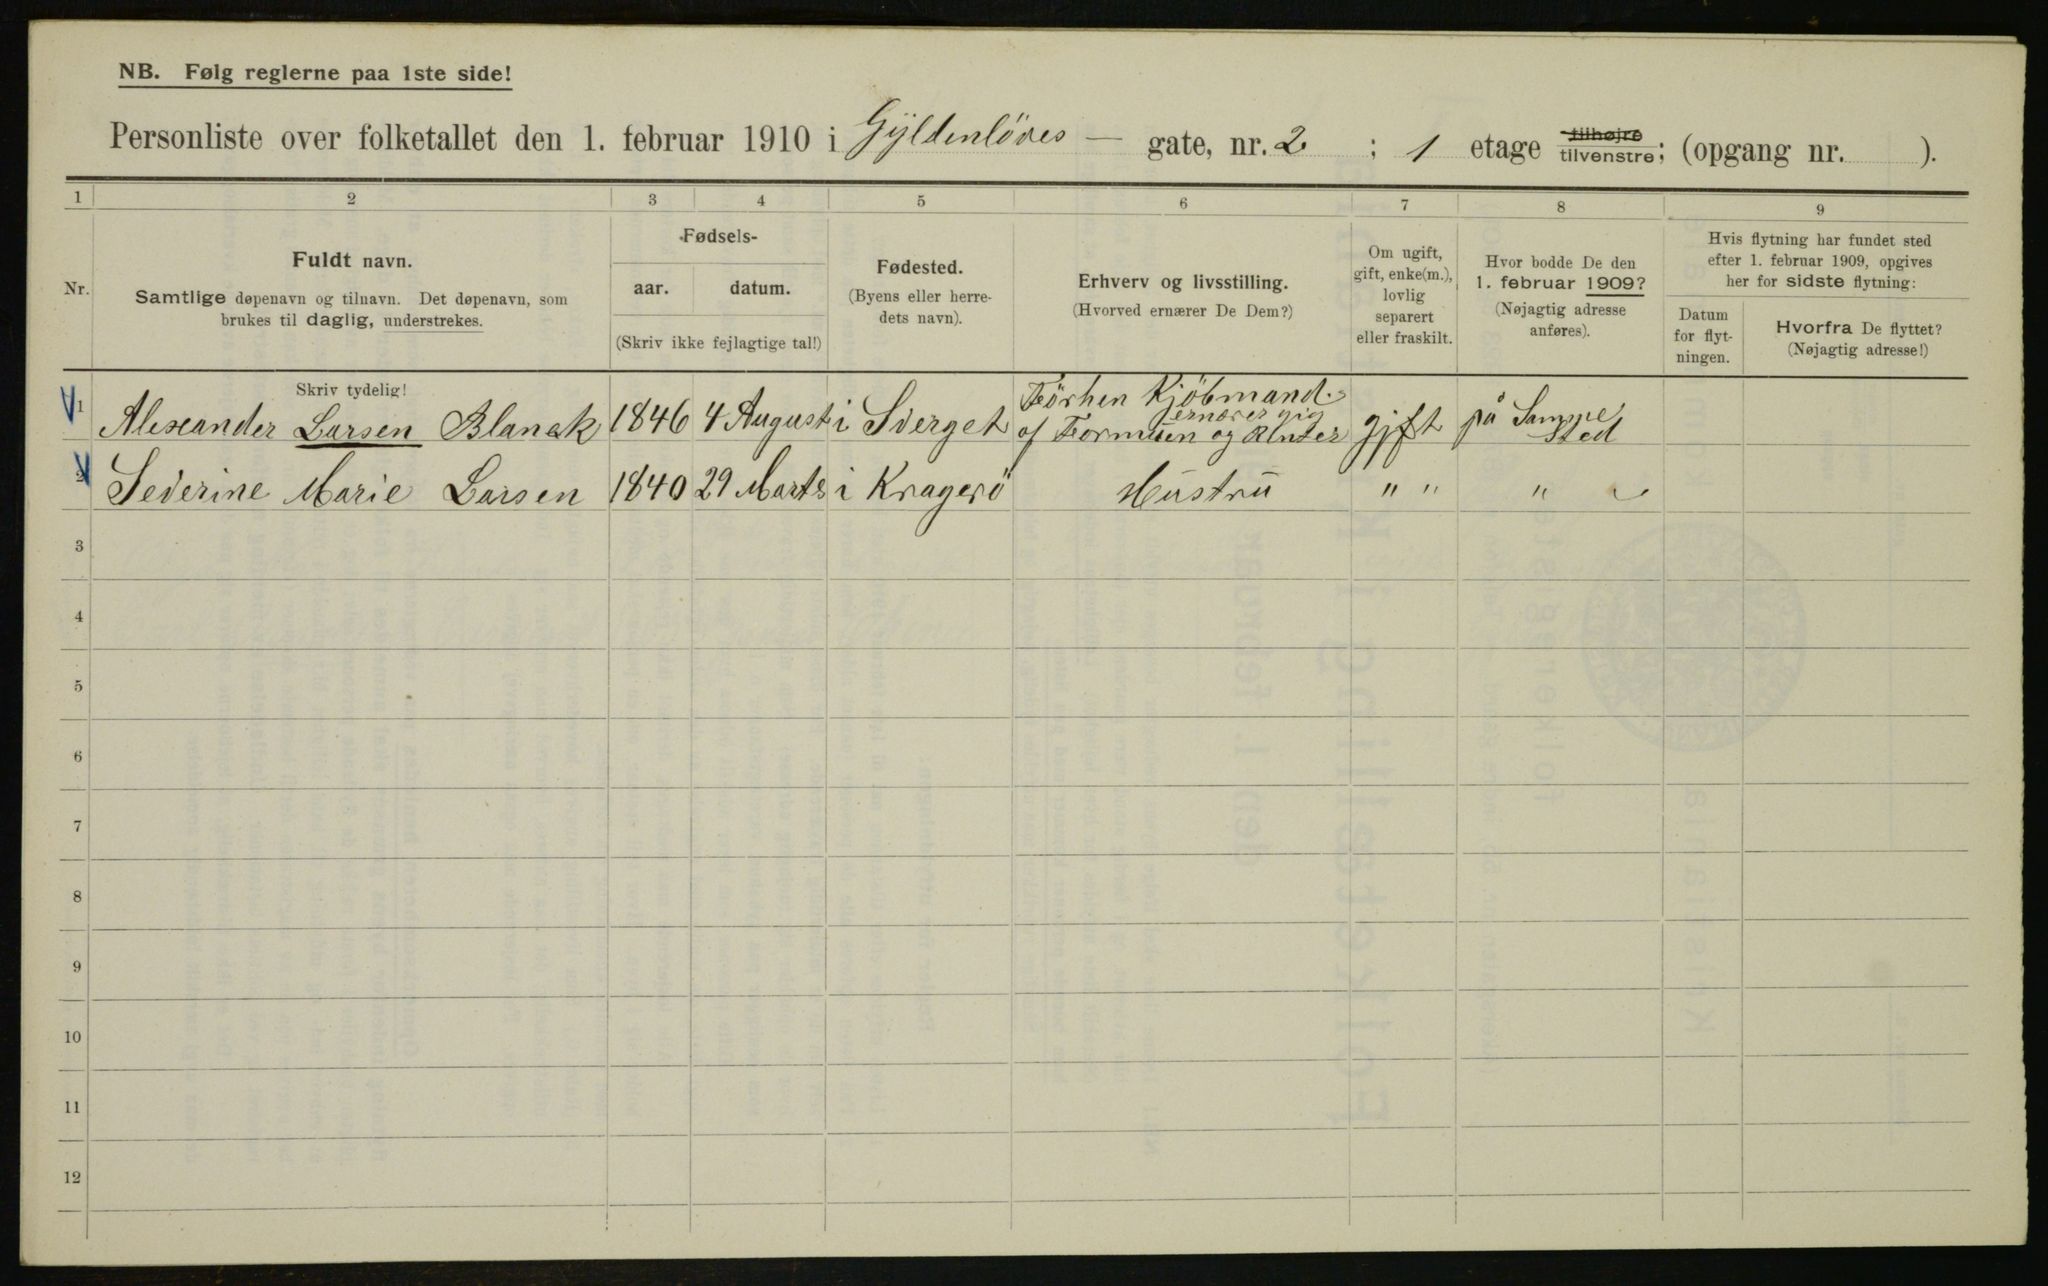 NB. Følg reglerne paa 1ste side!
Personliste over folketallet den 1. februar 1910 i Gyldenløves — gate, nr. 2 ; 1 etage tilhøjre tilvenstre; (opgang nr. ).
1 2 3 4 5 6 7 8 9
Nr.
Fuldt navn.
Samtlige døpenavn og tilnavn. Det døpenavn, som
brukes til daglig, understrekes.
Fødsels-
aar. datum.
(Skriv ikke fejlagtige tal!)
Fødested.
(Byens eller herre-
dets navn).
Erhverv og livsstilling.
(Hvorved ernærer De Dem?)
Om ugift,
gift, enke(m.),
lovlig
separert
eller fraskilt.
Hvor bodde De den
1. februar 1909?
(Nøjagtig adresse
anføres).
Hvis flytning har fundet sted
efter 1. februar 1909, opgives
her for sidste flytning:
Datum
for flyt-
ningen.
Hvorfra De flyttet?
(Nøjagtig adresse!)
Skriv tydelig!
1 Alexander Larsen 1846 4 August i Sverget Förhen Kjöbmand. ernærer sig af Formuen og Renter gift på Samme Sted
2 Severine Marie Larsen 1840 29 Marts i Kragerö Hustru " " "
3
4
5
6
7
8
9
10
11
12